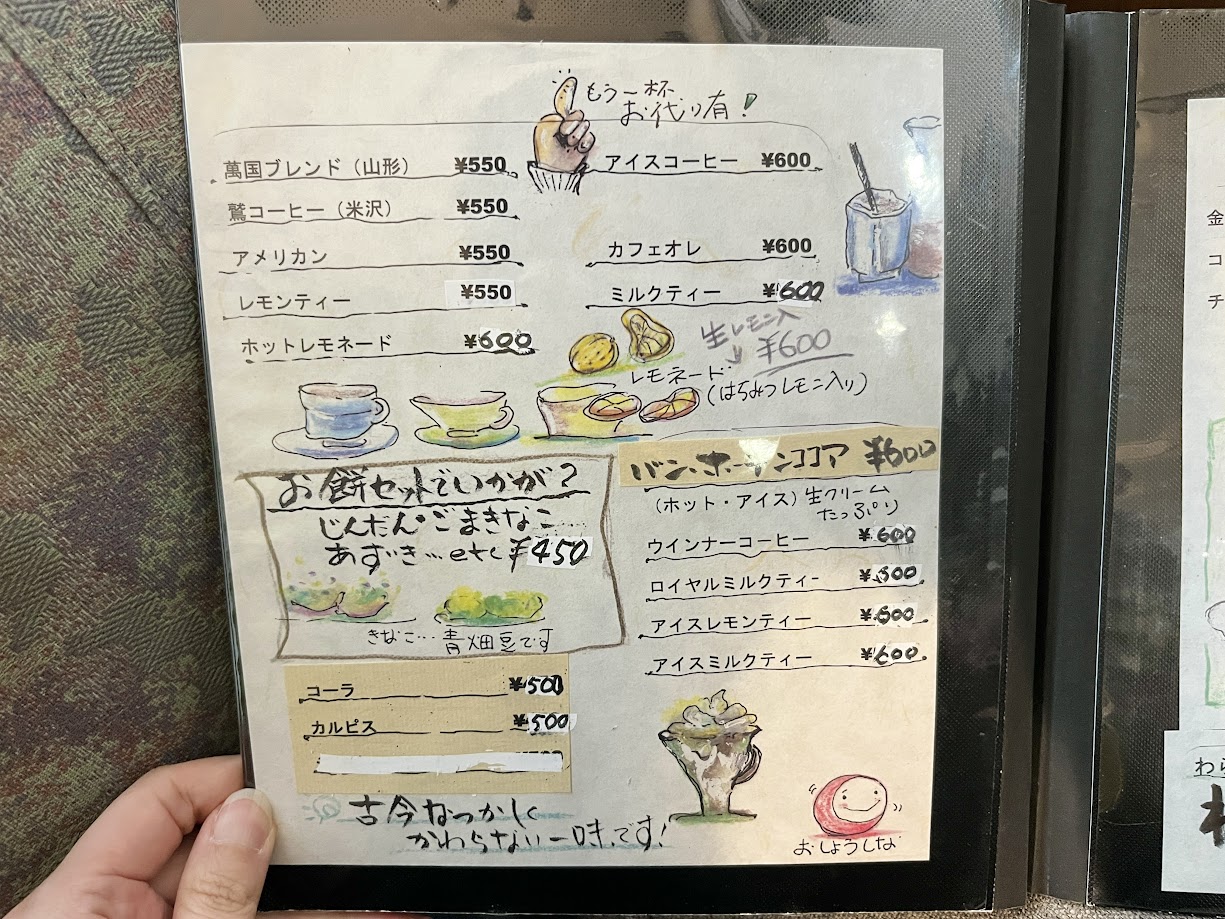 もう一杯
お代り有!
萬国ブレンド（山形） ¥550
鷲コーヒー（米沢） ¥550
アメリカン ¥550
レモンティー ¥550
ホットレモネード ¥600
アイスコーヒー ¥600
カフェオレ ¥600
ミルクティー ¥600
生レモン入
¥600
レモネード
(はちみつレモン入り)
お餅セットでいかが?
じんだん・ごまきなこ
あずき…etc ¥450
きなこ…青畑豆です
バンホーテンココア ¥600
（ホット・アイス）生クリーム
たっぷり
ウインナーコーヒー ¥600
ロイヤルミルクティー ¥600
アイスレモンティー ¥600
アイスミルクティー ¥600
コーラ ¥500
カルピス ¥500
古今なつかしく
かわらない一味です!
おしょうしな
金
コ
チ
わら